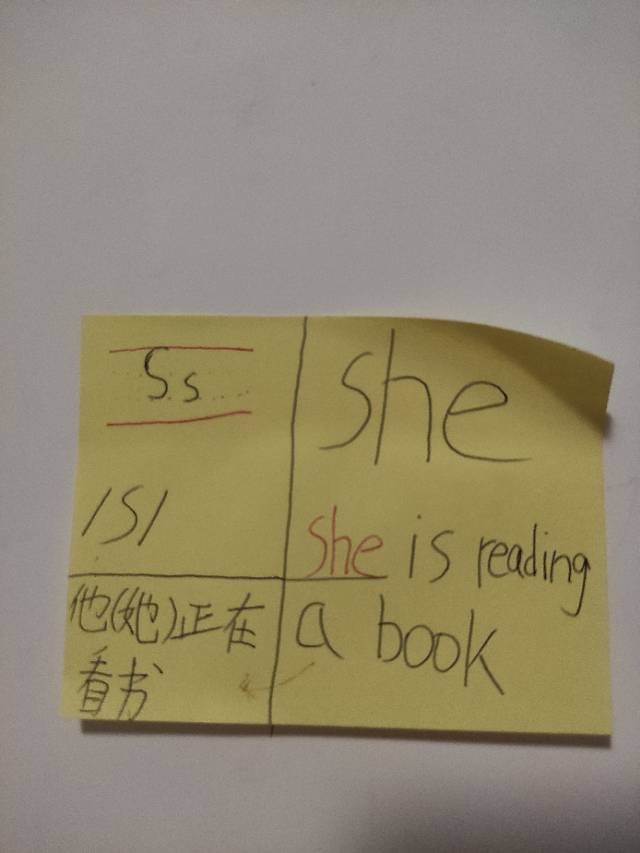 Ss
/S/
she
she is reading
a book
他(她)正在
看书